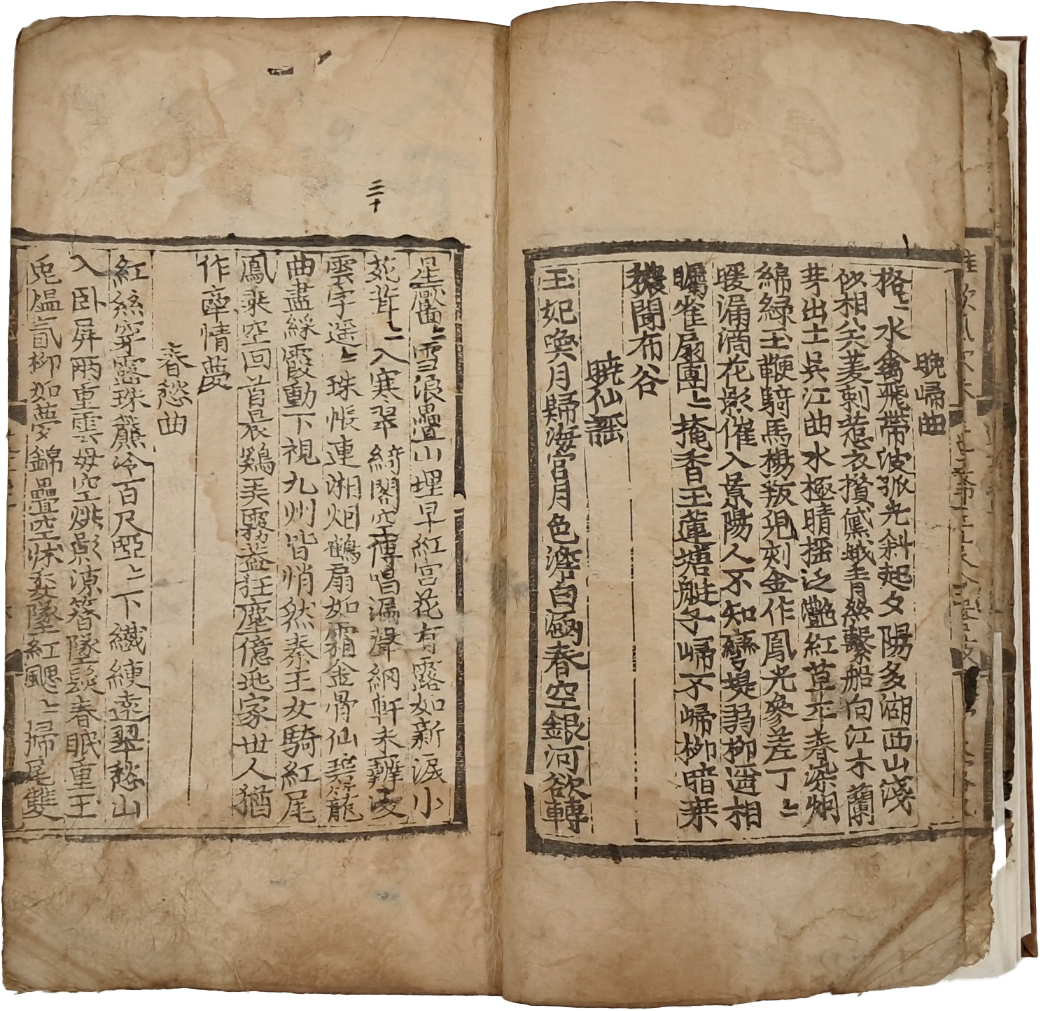 晚歸曲
格〻水禽飛帶波孤光斜起夕陽多湖西山淺
似相笑菱刺惹衣攢黛蛾青絲繫船向江木蘭
芽出土吳江曲水極晴搖泛艷紅草平春染烟
綿綠玉鞭騎馬楊叛兒刻金作鳳光參差丁〻
暖漏滴花影催入景陽人不知彎堤弱柳遙相
矚雀扇團〻掩香玉蓮塘艇子歸不歸柳暗桒
穠聞布谷
曉仙謠
玉妃喚月歸海宮月色澹白涵春空銀河欲轉
三十
星靨〻雪浪疊山埋早紅宮花有露如新淚小
苑茸〻入寒翠綺閣空傳唱漏聲網軒未辨凌
雲字遙〻珠帳連湘烟鶴扇如霜金骨仙碧簫
曲盡綵霞動下視九州皆悄然秦王女騎紅尾
鳳乘空回首晨鷄弄霧盖狂塵億兆家世人猶
作牽情夢
春愁曲
紅絲穿露珠簾冷百尺啞〻下纖綆遠翠愁山
入卧屏兩重雲母空烘影凉簪墜髮春眠重玉
兎煴氳柳如夢錦疊空牀委墜紅颸〻掃尾雙